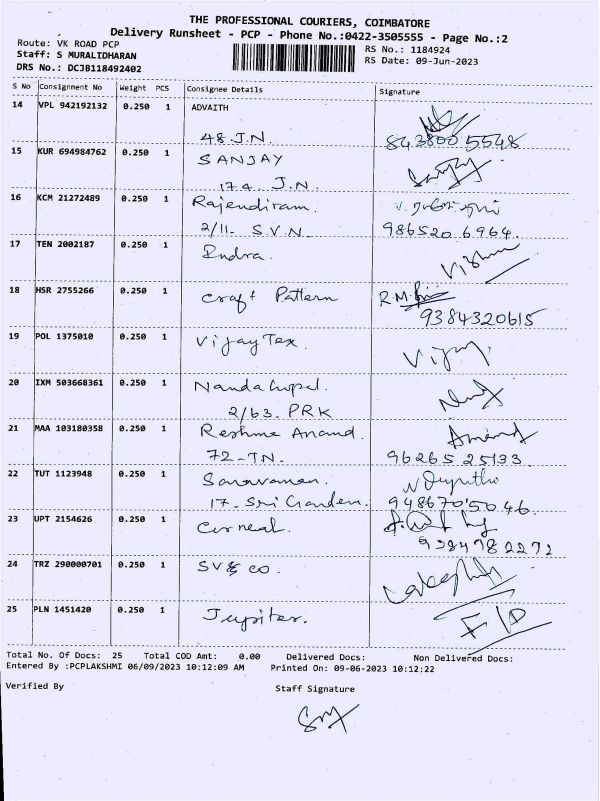 THE PROFESSIONAL COURIERS, COIMBATORE
Delivery Runsheet - PCP - Phone No.:0422-3505555 - Page No.:2
Route: VK ROAD PCP
RS No.: 1184924
Staff: S MURALIDHARAN
RS Date: 09-Jun-2023
DRS No.: DCJB118492402
S No Consignment No Weight PCS Consignee Details Signature
14 VPL 942192132 0.250 1 ADVAITH
48 J.N. 843800 5548
15 KUR 694984762 0.250 1 SANJAY Sanjay
174 J.N.
16 KCM 21272489 0.250 1 Rajendiram.
2/11- S.V.N 986520 6964.
17 TEN 2002187 0.250 1 Indra. Vishnu
18 HSR 2755266 0.250 1 craft Pattern R.M.
9384320615
19 POL 1375010 0.250 1 Vijay Tex. Vijay.
20 IXM 503668361 0.250 1 Nanda Gopal.
2/63- PRK
21 MAA 103180358 0.250 1 Reshme Anand. Anand
72-TN. 96265 25133
22 TUT 1123948 0.250 1 Saravanan.
17- Sri Garden. 9486705046.
23 UPT 2154626 0.250 1
9384782272
24 TRZ 290000701 0.250 1 SV & CO.
25 PLN 1451420 0.250 1 Jupiter.
Total No. Of Docs: 25 Total COD Amt: 0.00 Delivered Docs: Non Delivered Docs:
Entered By :PCPLAKSHMI 06/09/2023 10:12:09 AM Printed On: 09-06-2023 10:12:22
Verified By Staff Signature